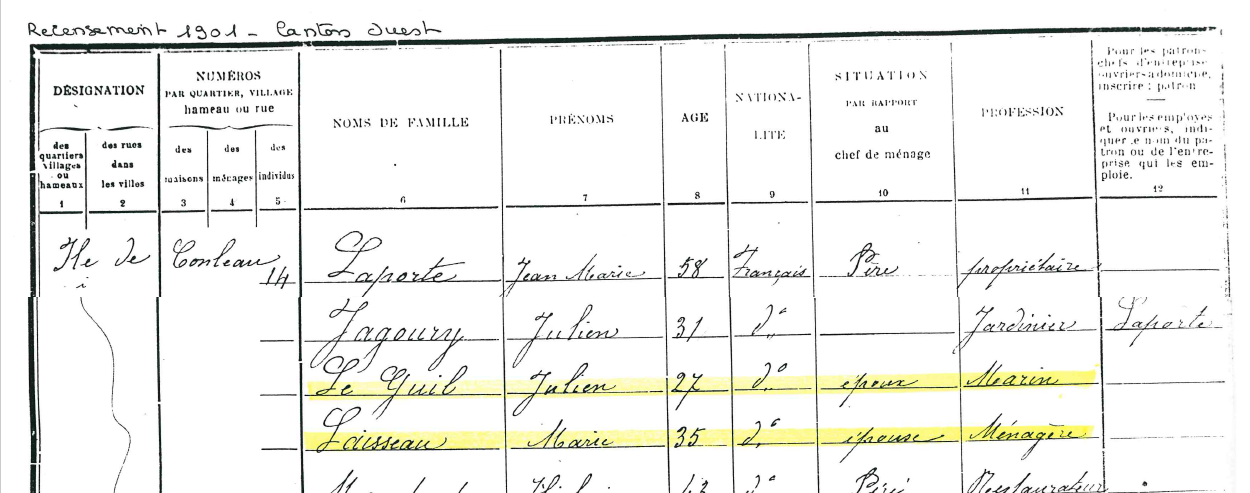 Recensement 1901 - Canton Ouest
DÉSIGNATION
des quartiers villages ou hameaux
1
des rues dans les villes
2
NUMÉROS
PAR QUARTIER, VILLAGE
hameau ou rue
des maisons
3
des ménages
4
des individus
5
NOMS DE FAMILLE
6
PRÉNOMS
7
AGE
8
NATIONA-
LITE
9
SITUATION
PAR RAPPORT
au
chef de ménage
10
PROFESSION
11
Pour les patrons
chefs d'entreprise
ouvriers à domicile,
inscrire : patron
Pour les employés
et ouvriers, indi-
quer le nom du pa-
tron ou de l'entre-
prise qui les em-
ploie.
12
Ile de Conleau 14 Laporte Jean Marie 58 Français Père propriétaire
Jagoury Julien 31 do Jardinier Laporte
Le Guil Julien 27 do époux Marin
Laisseau Marie 35 do épouse Ménagère
Restaurateur